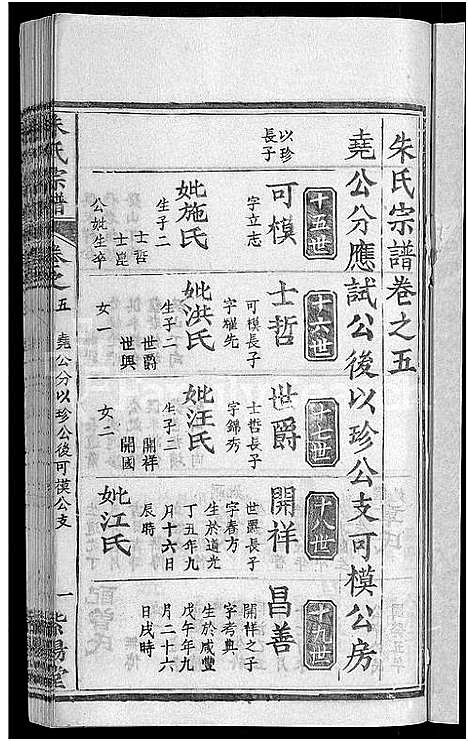 朱氏宗譜卷之五
堯公分應試公後以珍公支可模公房
十五世
以珍
長子
可模
字立志
妣施氏
生子二
士哲
士崑
公妣生卒
十六世
士哲
可模長子
字耀先
妣洪氏
生子二
世爵
世興
女一
十七世
世爵
士哲長子
字錦秀
妣汪氏
生子二
開祥
開國
女二
十八世
開祥
世爵長子
字春方
生於道光
丁五年九
月十六日
辰時
妣江氏
十九世
昌善
開祥之子
字考典
生於咸豐
戊午年九
月二十六
日戌時
朱氏宗譜
卷之五
堯公分以珍公後可模公支
一
紫陽堂